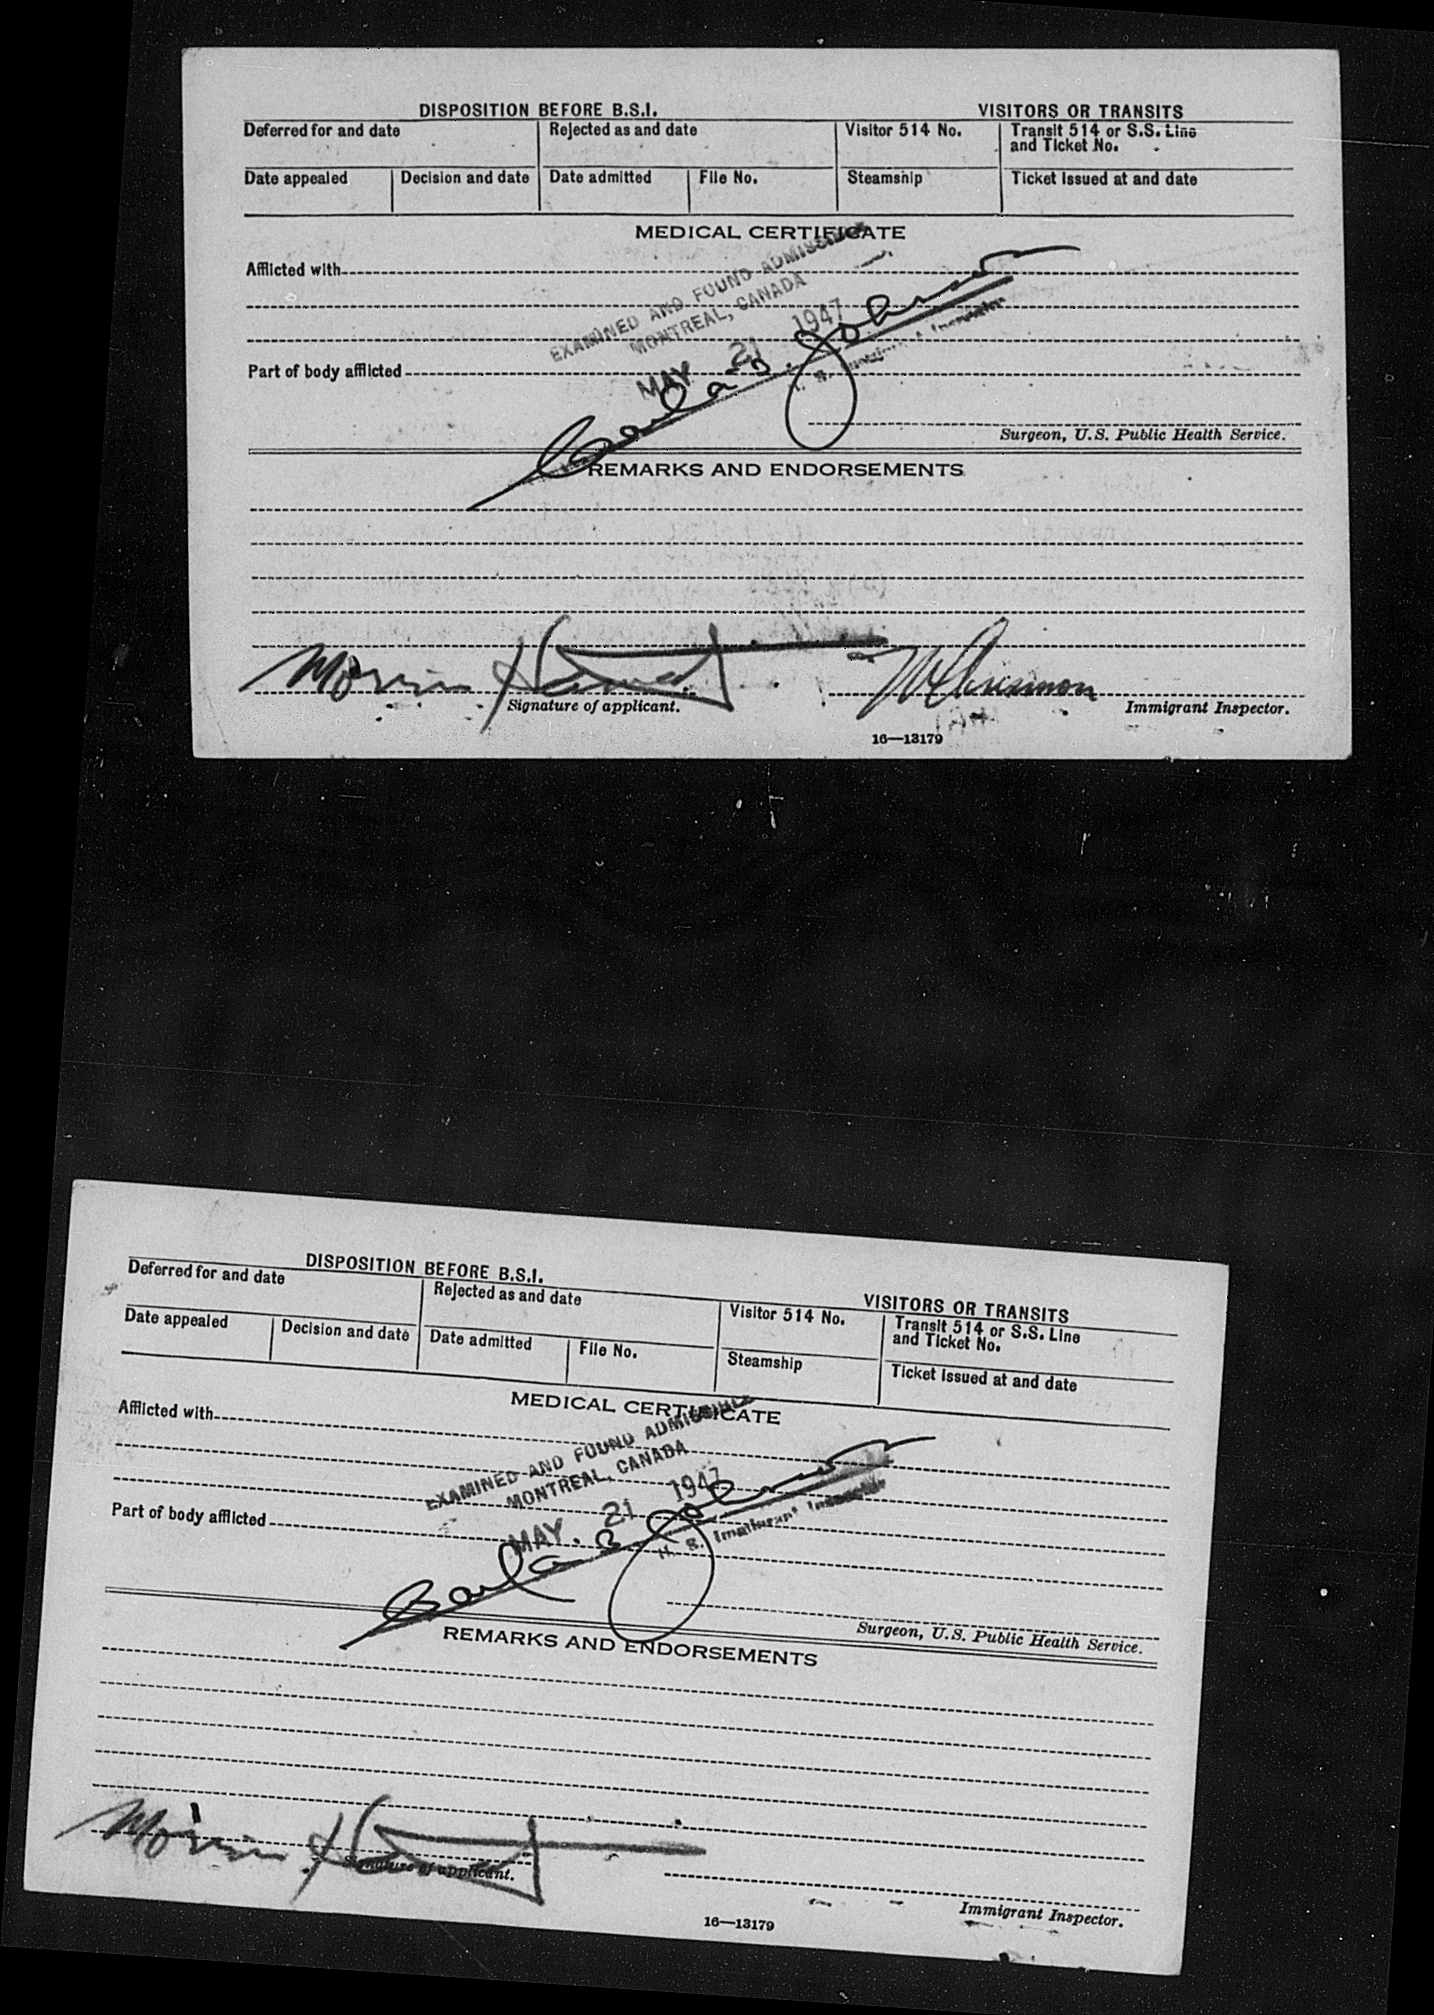 DISPOSITION BEFORE B.S.I. VISITORS OR TRANSITS
Deferred for and date Rejected as and date Visitor 514 No. Transit 514 or S.S. Line
and Ticket No.
Date appealed Decision and date Date admitted File No. Steamship Ticket issued at and date
MEDICAL CERTIFICATE
Afflicted with
EXAMINED AND FOUND ADMISSIBLE
MONTREAL, CANADA
MAY 21 1947
Part of body afflicted
Johnson
U. S. Immigrant Inspector
Surgeon, U.S. Public Health Service.
REMARKS AND ENDORSEMENTS
Morris
Signature of applicant. Immigrant Inspector.
16—13179
DISPOSITION BEFORE B.S.I. VISITORS OR TRANSITS
Deferred for and date Rejected as and date Visitor 514 No. Transit 514 or S.S. Line
and Ticket No.
Date appealed Decision and date Date admitted File No. Steamship Ticket issued at and date
MEDICAL CERTIFICATE
Afflicted with
EXAMINED AND FOUND ADMISSIBLE
MONTREAL, CANADA
MAY 21 1947
Part of body afflicted
Johnson
U. S. Immigrant Inspector
Surgeon, U.S. Public Health Service.
REMARKS AND ENDORSEMENTS
Morris
Signature of applicant.
Immigrant Inspector.
16—13179